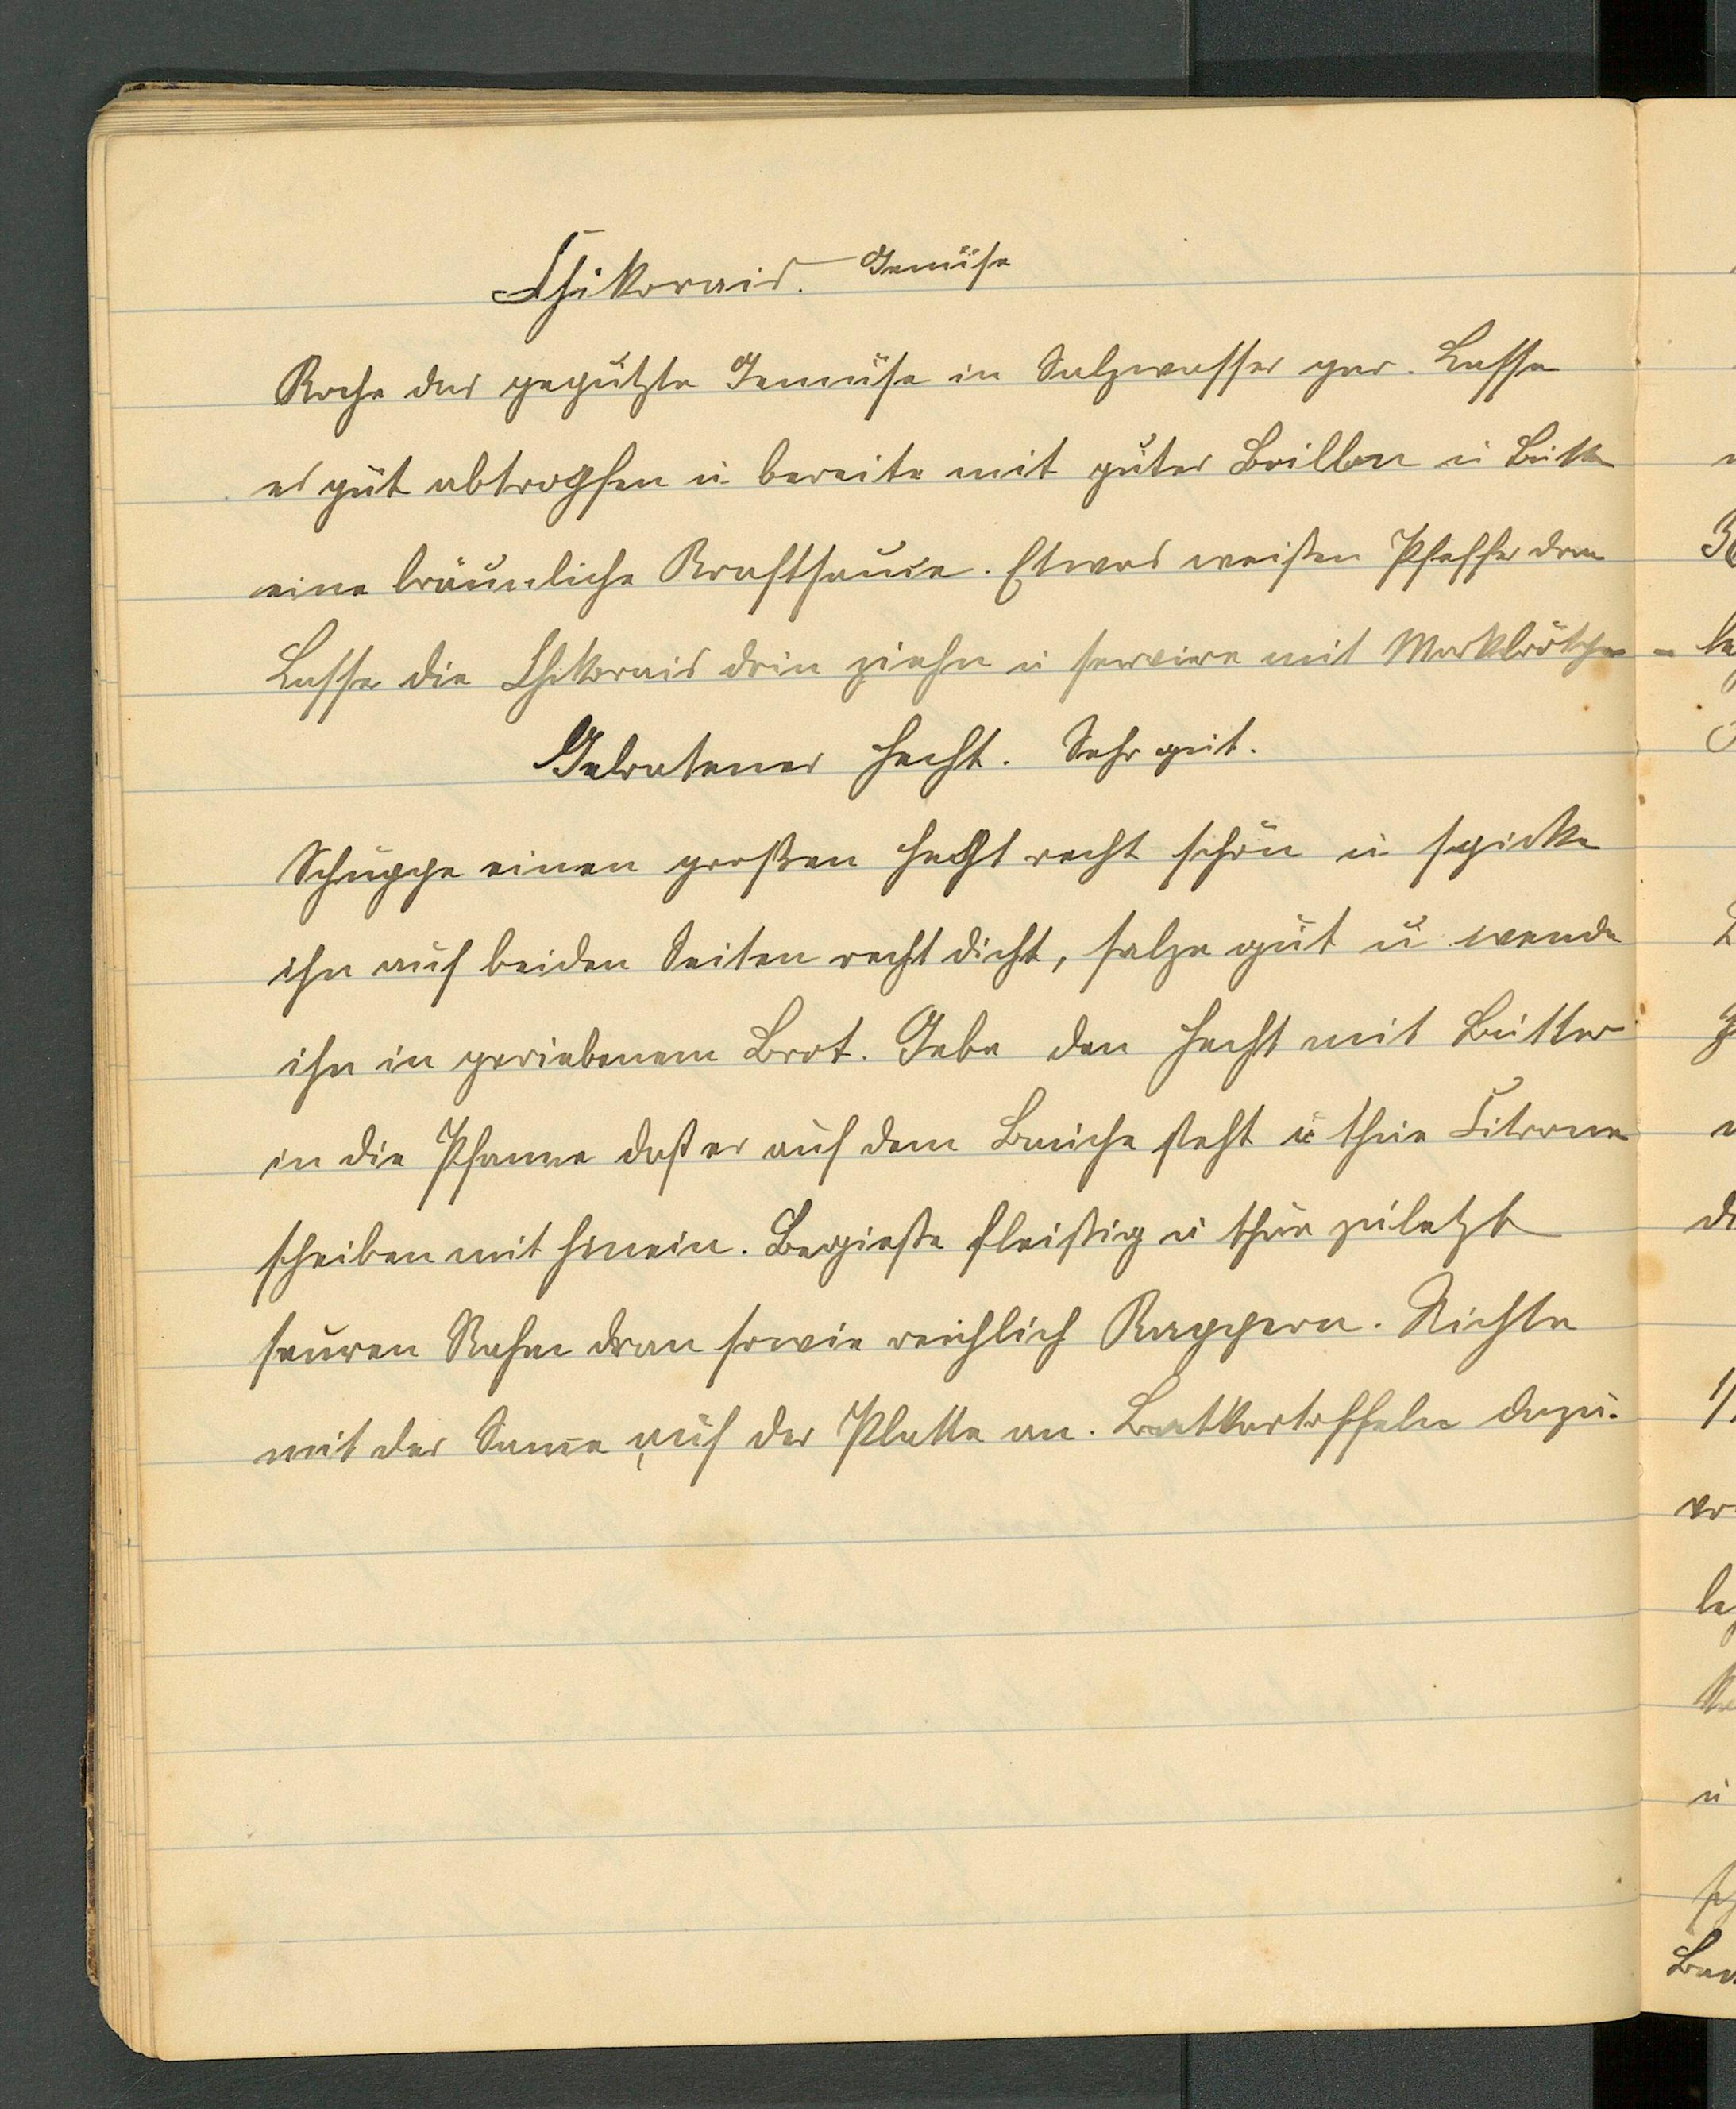 Chikorais. Gemüse
Koche das geputzte Gemüse in Salzwasser gar. Lasse
es gut abtropfen u bereite mit guter Boillon u Butter
eine bräunliche Kraftsauce. Etwas weißen Pfeffer dran
Lasse die Chikorais drin ziehn u servire mit Markbrötchen
Gebratener Hecht. Sehr gut.
Schuppe einen großen Hecht recht schön u spicke
ihn auf beiden Seiten recht dicht, salze gut u wende
ihn in geriebenem Brot. Gebe den Hecht mit Butter
in die Pfanne daß er auf dem Bauche steht u thue Citrone
scheiben mit hinein. Begieße fleißig u thue zuletzt
sauren Rahm dran sowie reichlich Kappern. Richte
mit der Sauce auf der Platte an. Bratkartoffeln dazu.